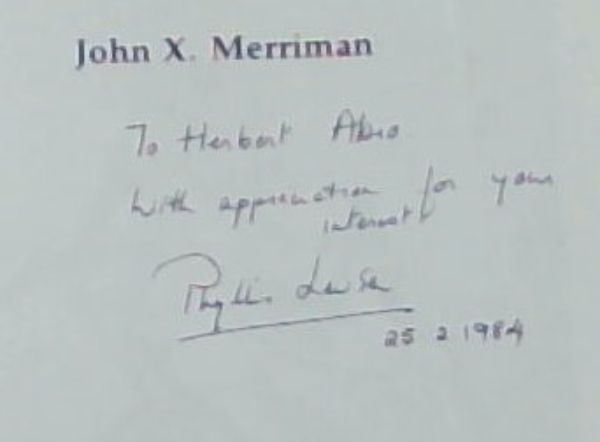 John X. Merriman
To Herbert Abro
With appreciation for your
interest
Phyllis Lewsen
25 2 1984